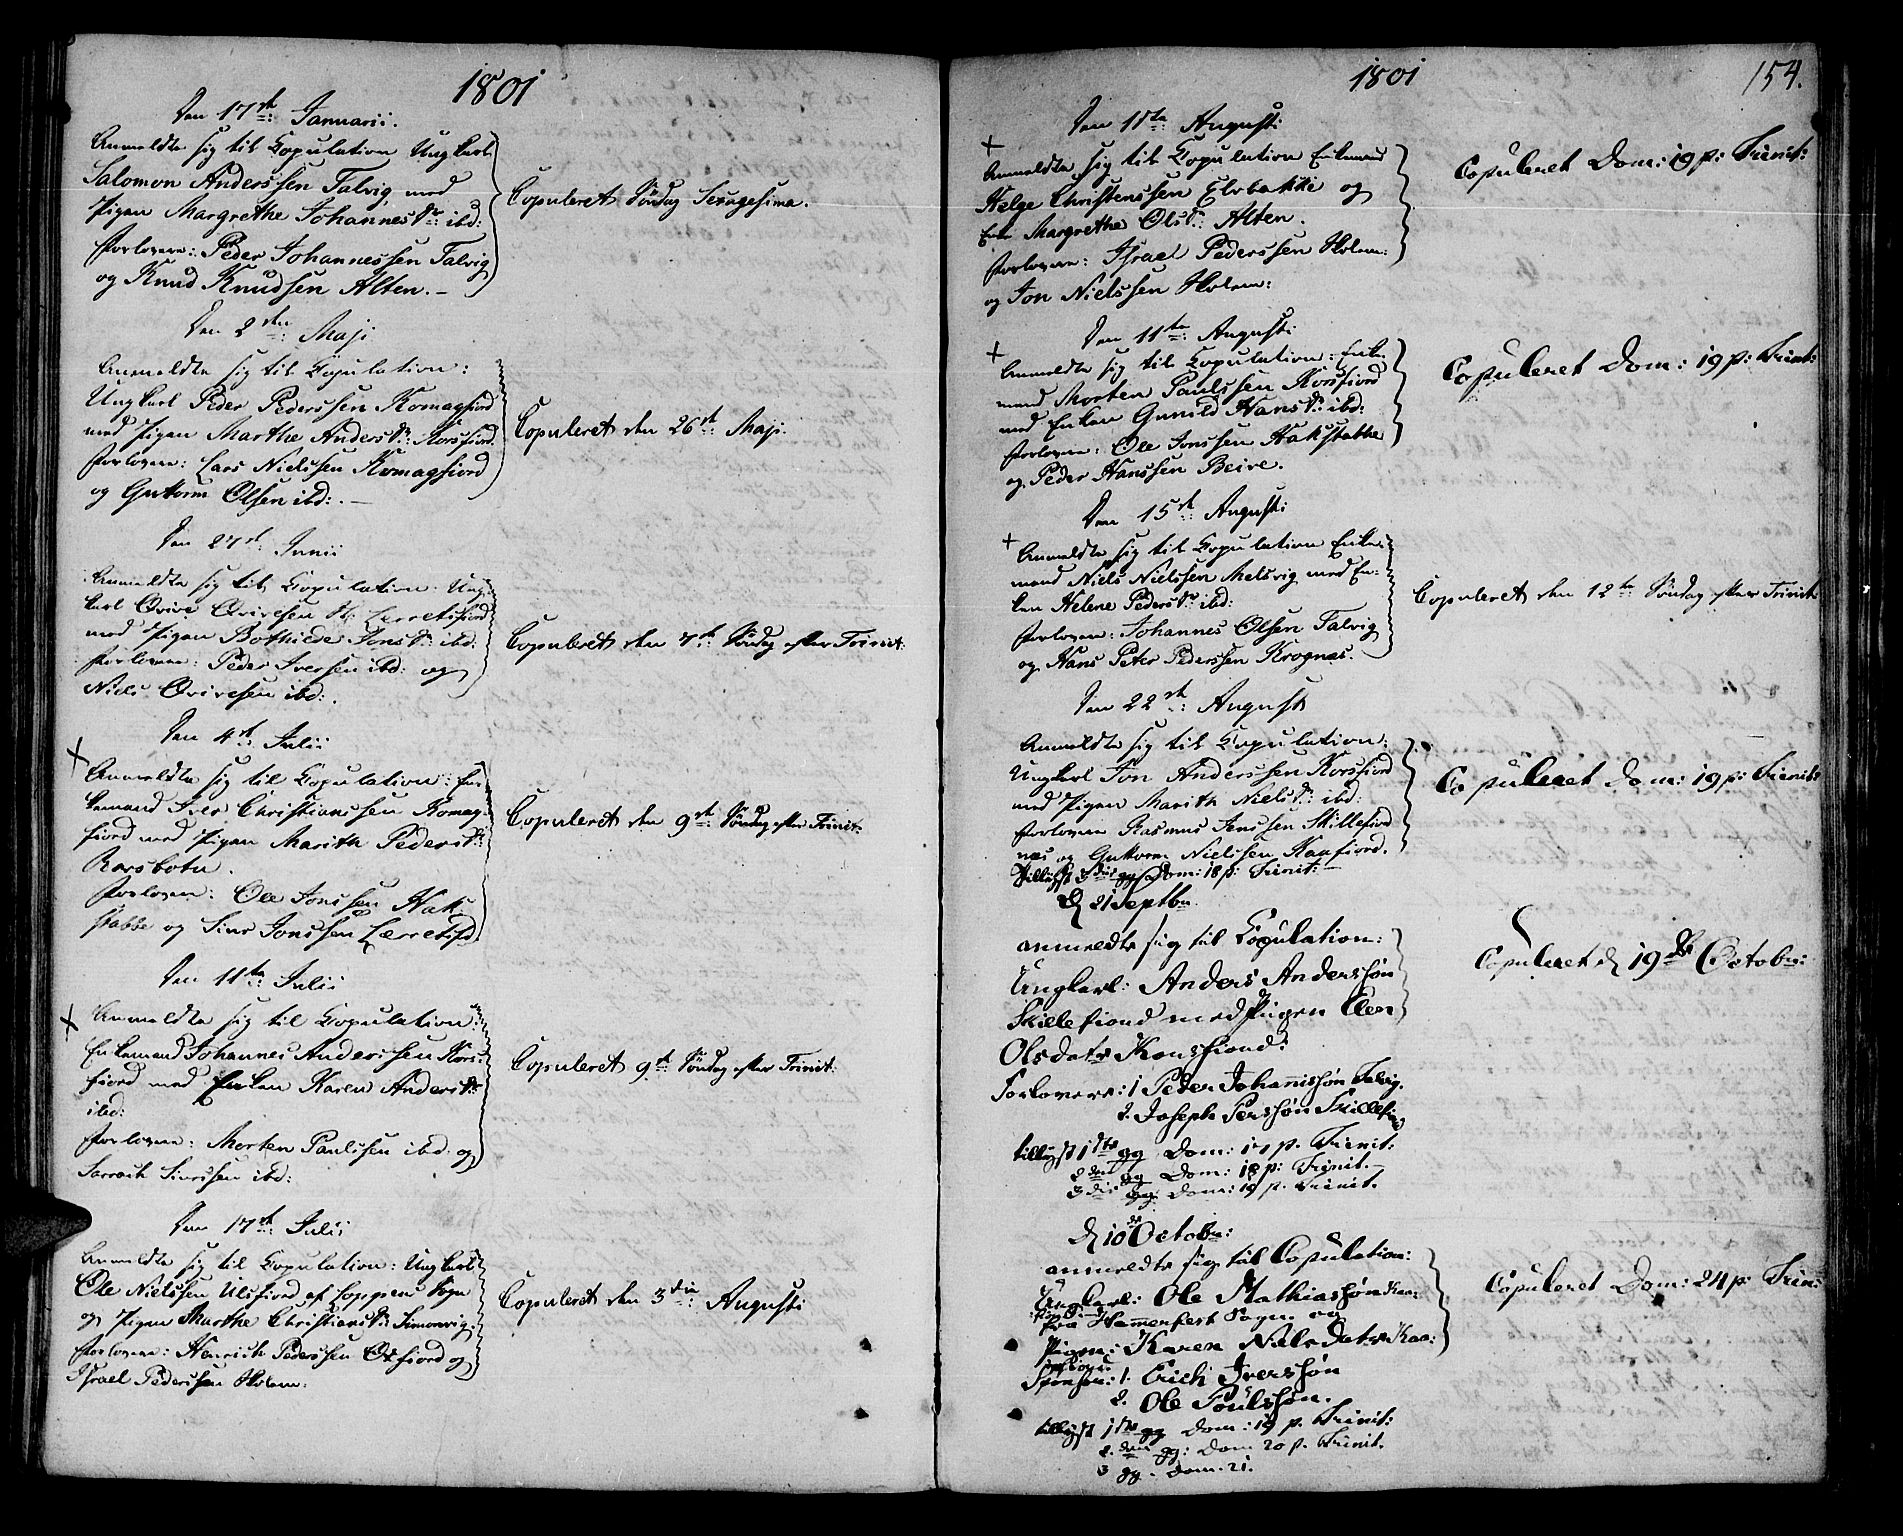 1801
Den 17de Januarii.
Anmeldte sig til Copulation Ungkarl
Salomon Anderssen Talvig med
Pigen Margrethe Johannesdr: ibd:
Forlovere: Peder Johannessen Talvig
og Knud Knudsen Alten. –
Copuleret Søndag Sexagesima.
Den 2den Maji
Anmeldte sig til Copulation:
Ungkarl Peder Pederssen Komagfiord
med Pigen Marthe Andersdr: Korsfiord.
Forlovere: Lars Nielssen Komagfiord
og Guttorm Olsen ibd: . –
Copuleret den 26de Maji.
Den 27de Junii
Anmeldte sig til Copulation: Ung-
karl Qvive Qvivesen Lerretsfiord
med Pigen Bothilde Jonsdr: ibd:
Forlovere: Peder Iversen ibd: og
Niels Qvivesen ibd: .
Copuleret den 7de Søndag efter Trinit:
Den 4de Julii
Anmeldte sig til Copulation: En-
kemand Iver Christianssen Komag-
fiord med Pigen Marith Pedersdr:
Rarsbotn.
Forlovere: Ole Jonssen Hak-
stabbe og Siur Jonssen Lerretsfd.
Copuleret den 9de Søndag efter Trinit:
Den 11te Julii
Anmeldte sig til Copulation:
Enkemand Johannes Anderssen Kors-
fiord med Enken Karen Andersdr:
ibd:
Forlovere: Morten Paulssen ibd: og
Siurssen ibd:
Copuleret 9de Søndag efter Trinit:
Den 17de Julii
Anmeldte sig til Copulation: Ungkarl
Ole Nielssen Ulsfiord af Loppens Sogn
og Pigen Marthe Christiansdr: Simonvig.
Forlovere: Henrich Pederssen Oxfiord og
Israel Pederssen Holm:
Copuleret den 3die Augusti
1801
154.
Den 11te Augusti
Anmeldte sig til Copulation Enkemand
Helge Christenssen Elvbakke og
Enke Margrethe Olsdr: Alten.
Forlovere: Israel Pederssen Holm:
og Jon Nielssen Holm:
Copuleret Dom: 19 p: Trinit:
Den 11te Augusti
Anmeldte sig til Copulation: Enke-
mand Morten Paulssen Korsfiord
med Enken Gunild Hansdr: ibd:
Forlovere: Ole Jonssen Hakstabbe
og Peder Hanssen Beive.
Copuleret Dom: 19 p: Trinit:
Den 15de Augusti
Anmeldte sig til Copulation Enke-
mand Niels Nielssen Melsvig med En-
ken Helene Pedersdr: ibd:
Forlovere: Johannes Olsen Talvig
og Hans Peter Pederssen Krognæs.
Copuleret den 12te Søndag efter Trinit:
Den 22de August
Anmeldte sig til Copulation:
Ungkarl Jon Anderssen Korsfiord
med Pigen Marith Nielsdr: ibd:
Forlovere Rasmus Jenssen Skillefiord
næs og Guttorm Nielssen Kaafiord.
Tillyst 3die gg Dom: 18 p: Trinit:
Copuleret Dom: 19 p: Trinit:
d 21 Septbr.
anmeldte sig til Copulation:
Ungkarl: Anders Anderssøn
Skillefiord med Pigen Elen
Olsdatr Korsfiord:
Forlovere: 1 Peder Johannissøn Talvig.
2. Joseph Perssøn Skillefiord
tillyst 1ste gg Dom: 17 p. Trinit:
2den gg Dom: 18 p: Trinit.
3die gg: Dom: 19 p. Trinit.
Copuleret d 19de Octobr:
d 10de Octobr:
anmeldte sig til Copulation:
Ungkarl: Ole Mathiassøn Kaa-
fra Hammerfest Sogn og
Pigen: Karen Nielsdatr Kaa:
1. Erich Iverssøn
2. Ole Poulssøn.
tillyst 1ste gg Dom: 19 p. Trinit:
2. den gg: Dom 20 p. Trinit.
3 gg. Dom. 21.
Copuleret Dom: 24 p: Trin: